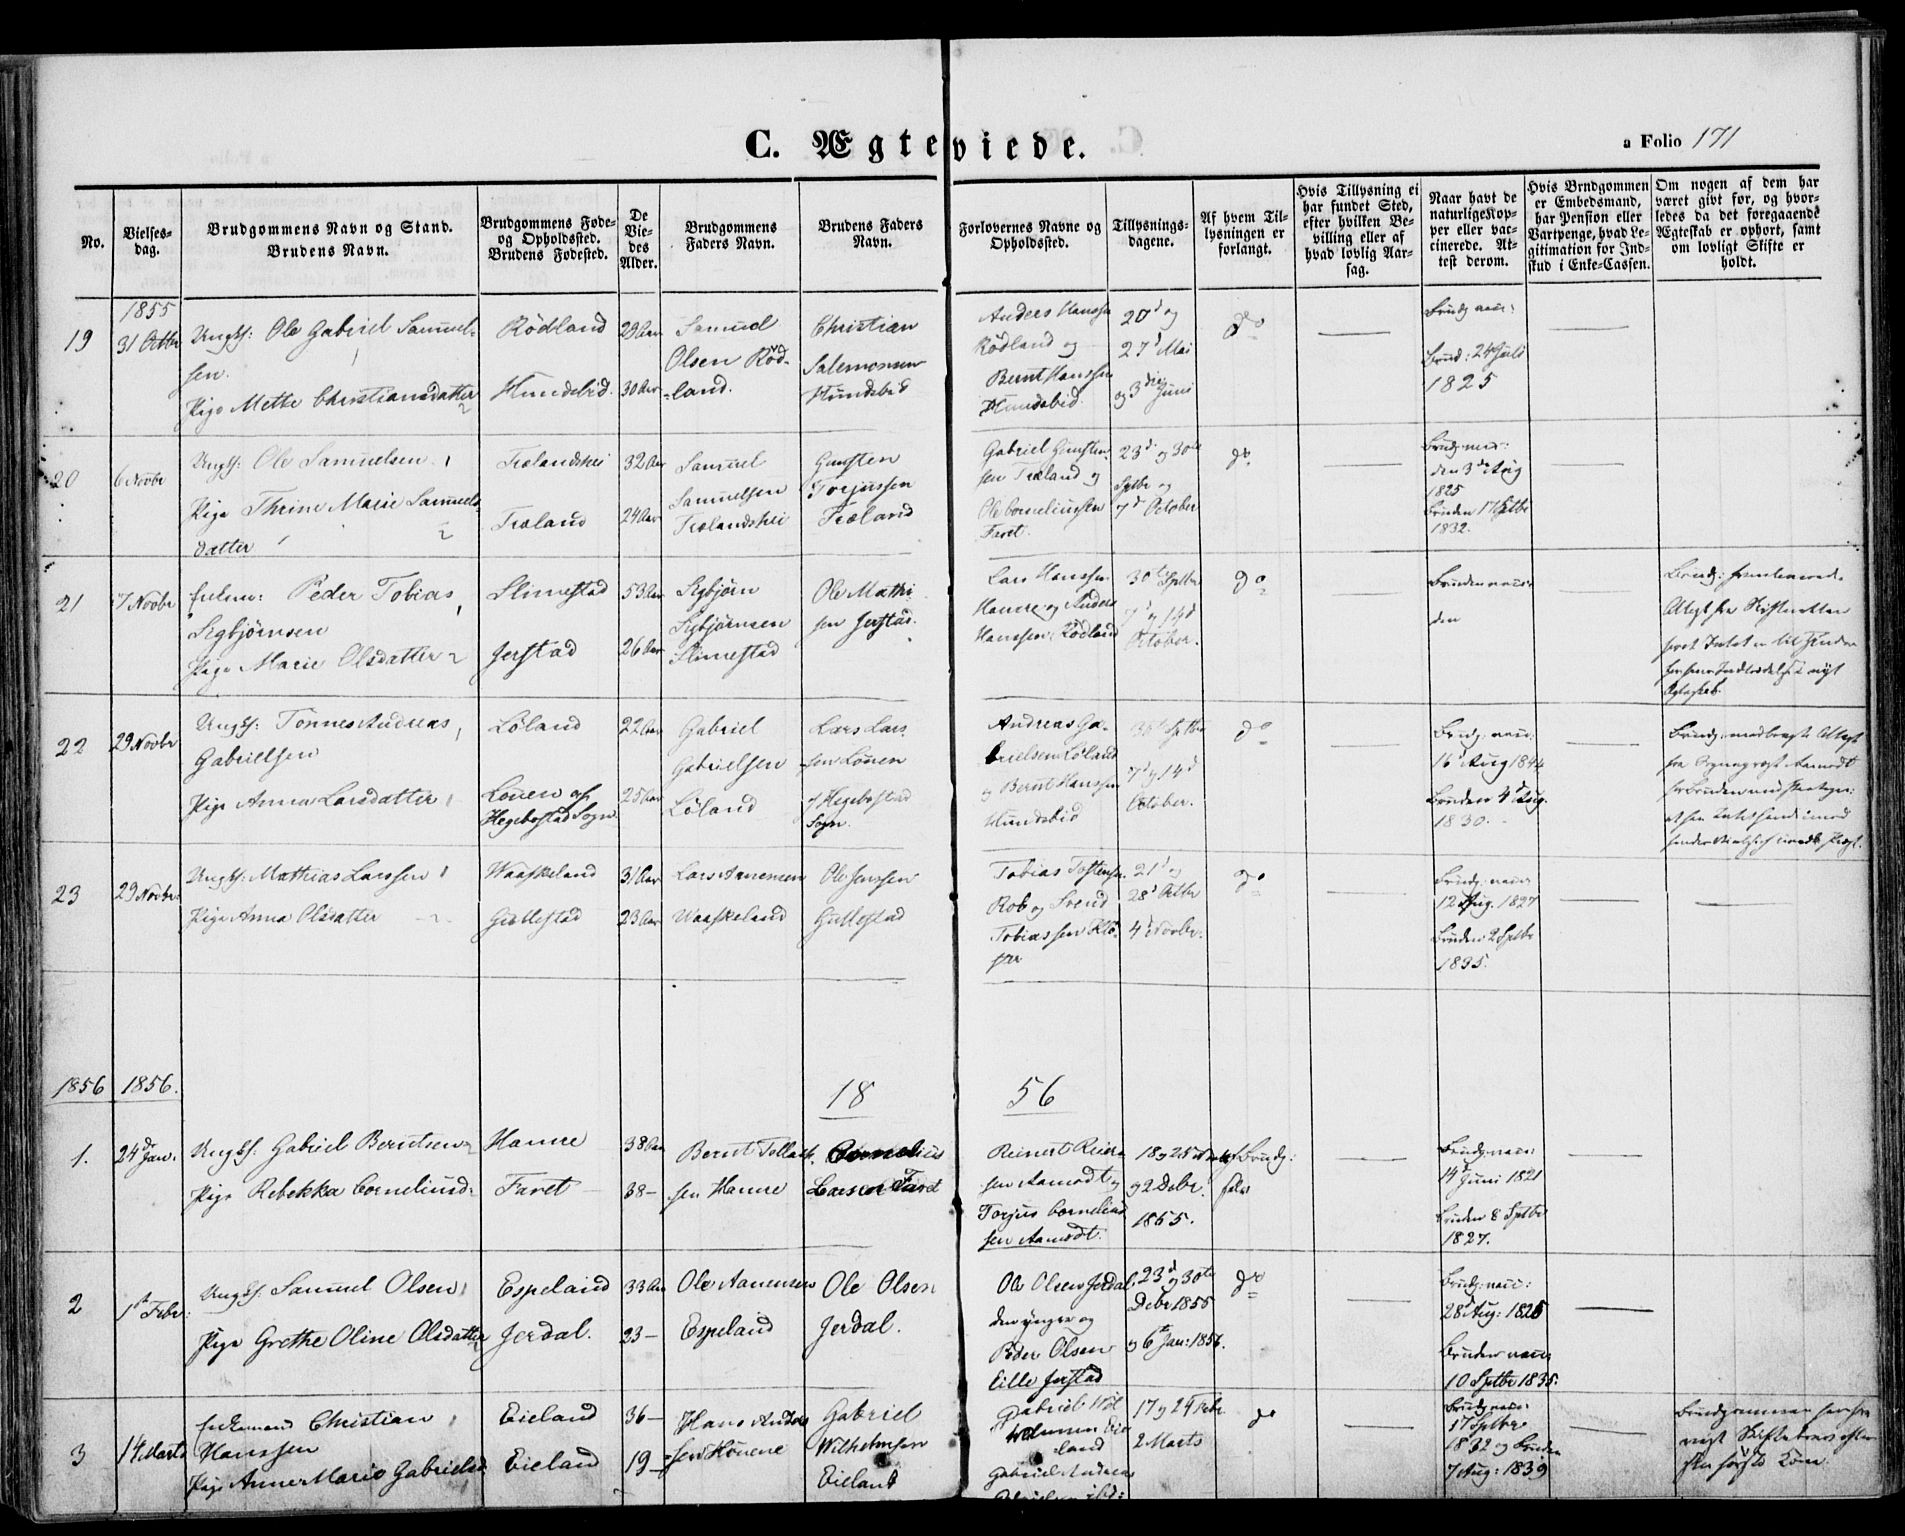 C. Ægteviede.
a Folio 171
No.
Vielses-
dag.
Brudgommens Navn og Stand.
Brudens Navn.
Brudgommens Føde-
og Opholdssted.
Brudens Fødested.
De
Vie-
des
Alder.
Brudgommens
Faders Navn.
Brudens Faders
Navn.
Forlovernes Navne og
Opholdssted.
Tillysnings-
dagene.
Af hvem Til-
lysningen er
forlangt.
Hvis Tillysning ei
har fundet Sted,
efter hvilken Be-
villing eller af
hvad lovlig Aar-
sag.
Naar havt de
naturlige Kop-
per eller vac-
cinerede. At-
test derom.
Hvis Brudgommen
er Embedsmand,
har Pension eller
Vartpenge, hvad Le-
gitimation for Ind-
skud i Enke-Cassen.
Om nogen af dem har
været givt før, og hvor-
ledes da det foregaaende
Ægteskab er ophørt, samt
om lovligt Skifte er
holdt.
1855
19
31 Octbr
Ungk: Ole Gabriel Samuel-
sen.
Pige Mette Christiansdatter
Rödland
Hundsbid.
29 Aar
30 Aar
Samuel
Olsen Röd-
land.
Christian
Salemonsen
Hundsbid
Anders Hanssen
Rödland og
Bernt Hanssen
Hundsbid.
20d og
27d Mai
og 3die Juni
do
Brudg. vacc:
Brud: 24 Juli
1825
20
6 Novbr
Ungk: Ole Samuelsen
Pige Thrine Marie Samuels
datter
Trælandshei
Træland
32 Aar
24 Aar
Samuel
Samuelsen
Trælandshei
Gunsten
Torjussen
Træland
Gabriel Gunsten-
sen Træland og
Ole Corneliussen
Faret.
23d og 30te
Septbr og
7d October
do
Brudg. vacc:
den 3de Aug
1825
Bruden 17 Septbr
1832.
21
7 Novbr
Enkem: Peder Tobias
Sigbjørnsen
Pige Marie Olsdatter
Slimestad
Jerstad
53 Aar
26 Aar
Sigbjørn
Sigbjørnsen
Slimestad
Ole Mathi-
sen Jerstad.
Lars Hanssen
Hamre og Anders
Hanssen Rödland
30te Septbr
7d og 14d
October.
do
Bruden vacc:
den
22
29 Novbr
Ungk: Tönnes Andreas
Gabrielsen
Pige Anna Larsdatter
Løland
Lönen af
Hegebostad Sogn
22 Aar
25 Aar
Gabriel
Gabrielsen
Løland
Lars Lars-
sen Lönen
i Hegebostad
Sogn.
Andreas Ga-
brielsen Løland
og Bernt Hanssen
Hundsbid
30te Septbr
7d og 14d
October.
do
Brudg. vacc:
16d Aug 1844
Bruden 4d Aug.
1830.
23
29 Novbr:
Ungk: Mathias Larssen
Pige Anna Olsdatter
Waaskeland
Gullestad
31 Aar
23 Aar
Lars Aanensen
Waaskeland
Ole Jenssen
Gullestad
Tobias Tostensen
Rob og Svend
Tobiassen
21d og
28d Octbr
4d Novbr.
do
Brudg. vacc:
12 Aug. 1827
Bruden 2 Septbr
1835.
1856
1856.
18
56
1.
24de Jan.
Ungk: Gabriel Berntsen
Pige Rebekka Corneliusd:
Hamre
Faret
38 Aar
38 —
Bernt Tollak-
sen Hamre
Cornelius
Larsen Faret
Reinert Reiers-
sen Aamodt og
Torjus Cornelius-
sen Aamodt.
18 og 25
og 2 Debr.
1855.
af Brudg:
selv
Brudg. vacc:
14d Juni 1821
Bruden 8 Septbr
1827.
2
1ste Febr:
Ungk: Samuel Olsen
Pige Grethe Oline Olsdatter
Espeland
Jerdal.
33 Aar
23 —
Ole Aanensen
Espeland
Ole Olsen
Jerdal.
Ole Olsen Jerdal
den yngre og
Peder Olsen
Lille Jerstad
23d og 30te
Debr 1855
og 6te Jan: 1856.
do
Brudg. vacc:
28d Aug: 1825
Bruden vacc:
10 Septbr 1835.
3
14 Marts
Enkemand Christian
Hanssen
Pige Anne Marie Gabrielsd
Eieland
Eieland
36 —
19 —
Hans Anders-
sen
Gabriel
Wilhelmsen
Eieland
Gabriel Wil-
helmsen Eie-
land
Gabriel Andreas
17 og 24 Febr
2 Marts
do
Brudg. vacc:
17 Septbr
1832 og Bruden
7 Aug: 1839